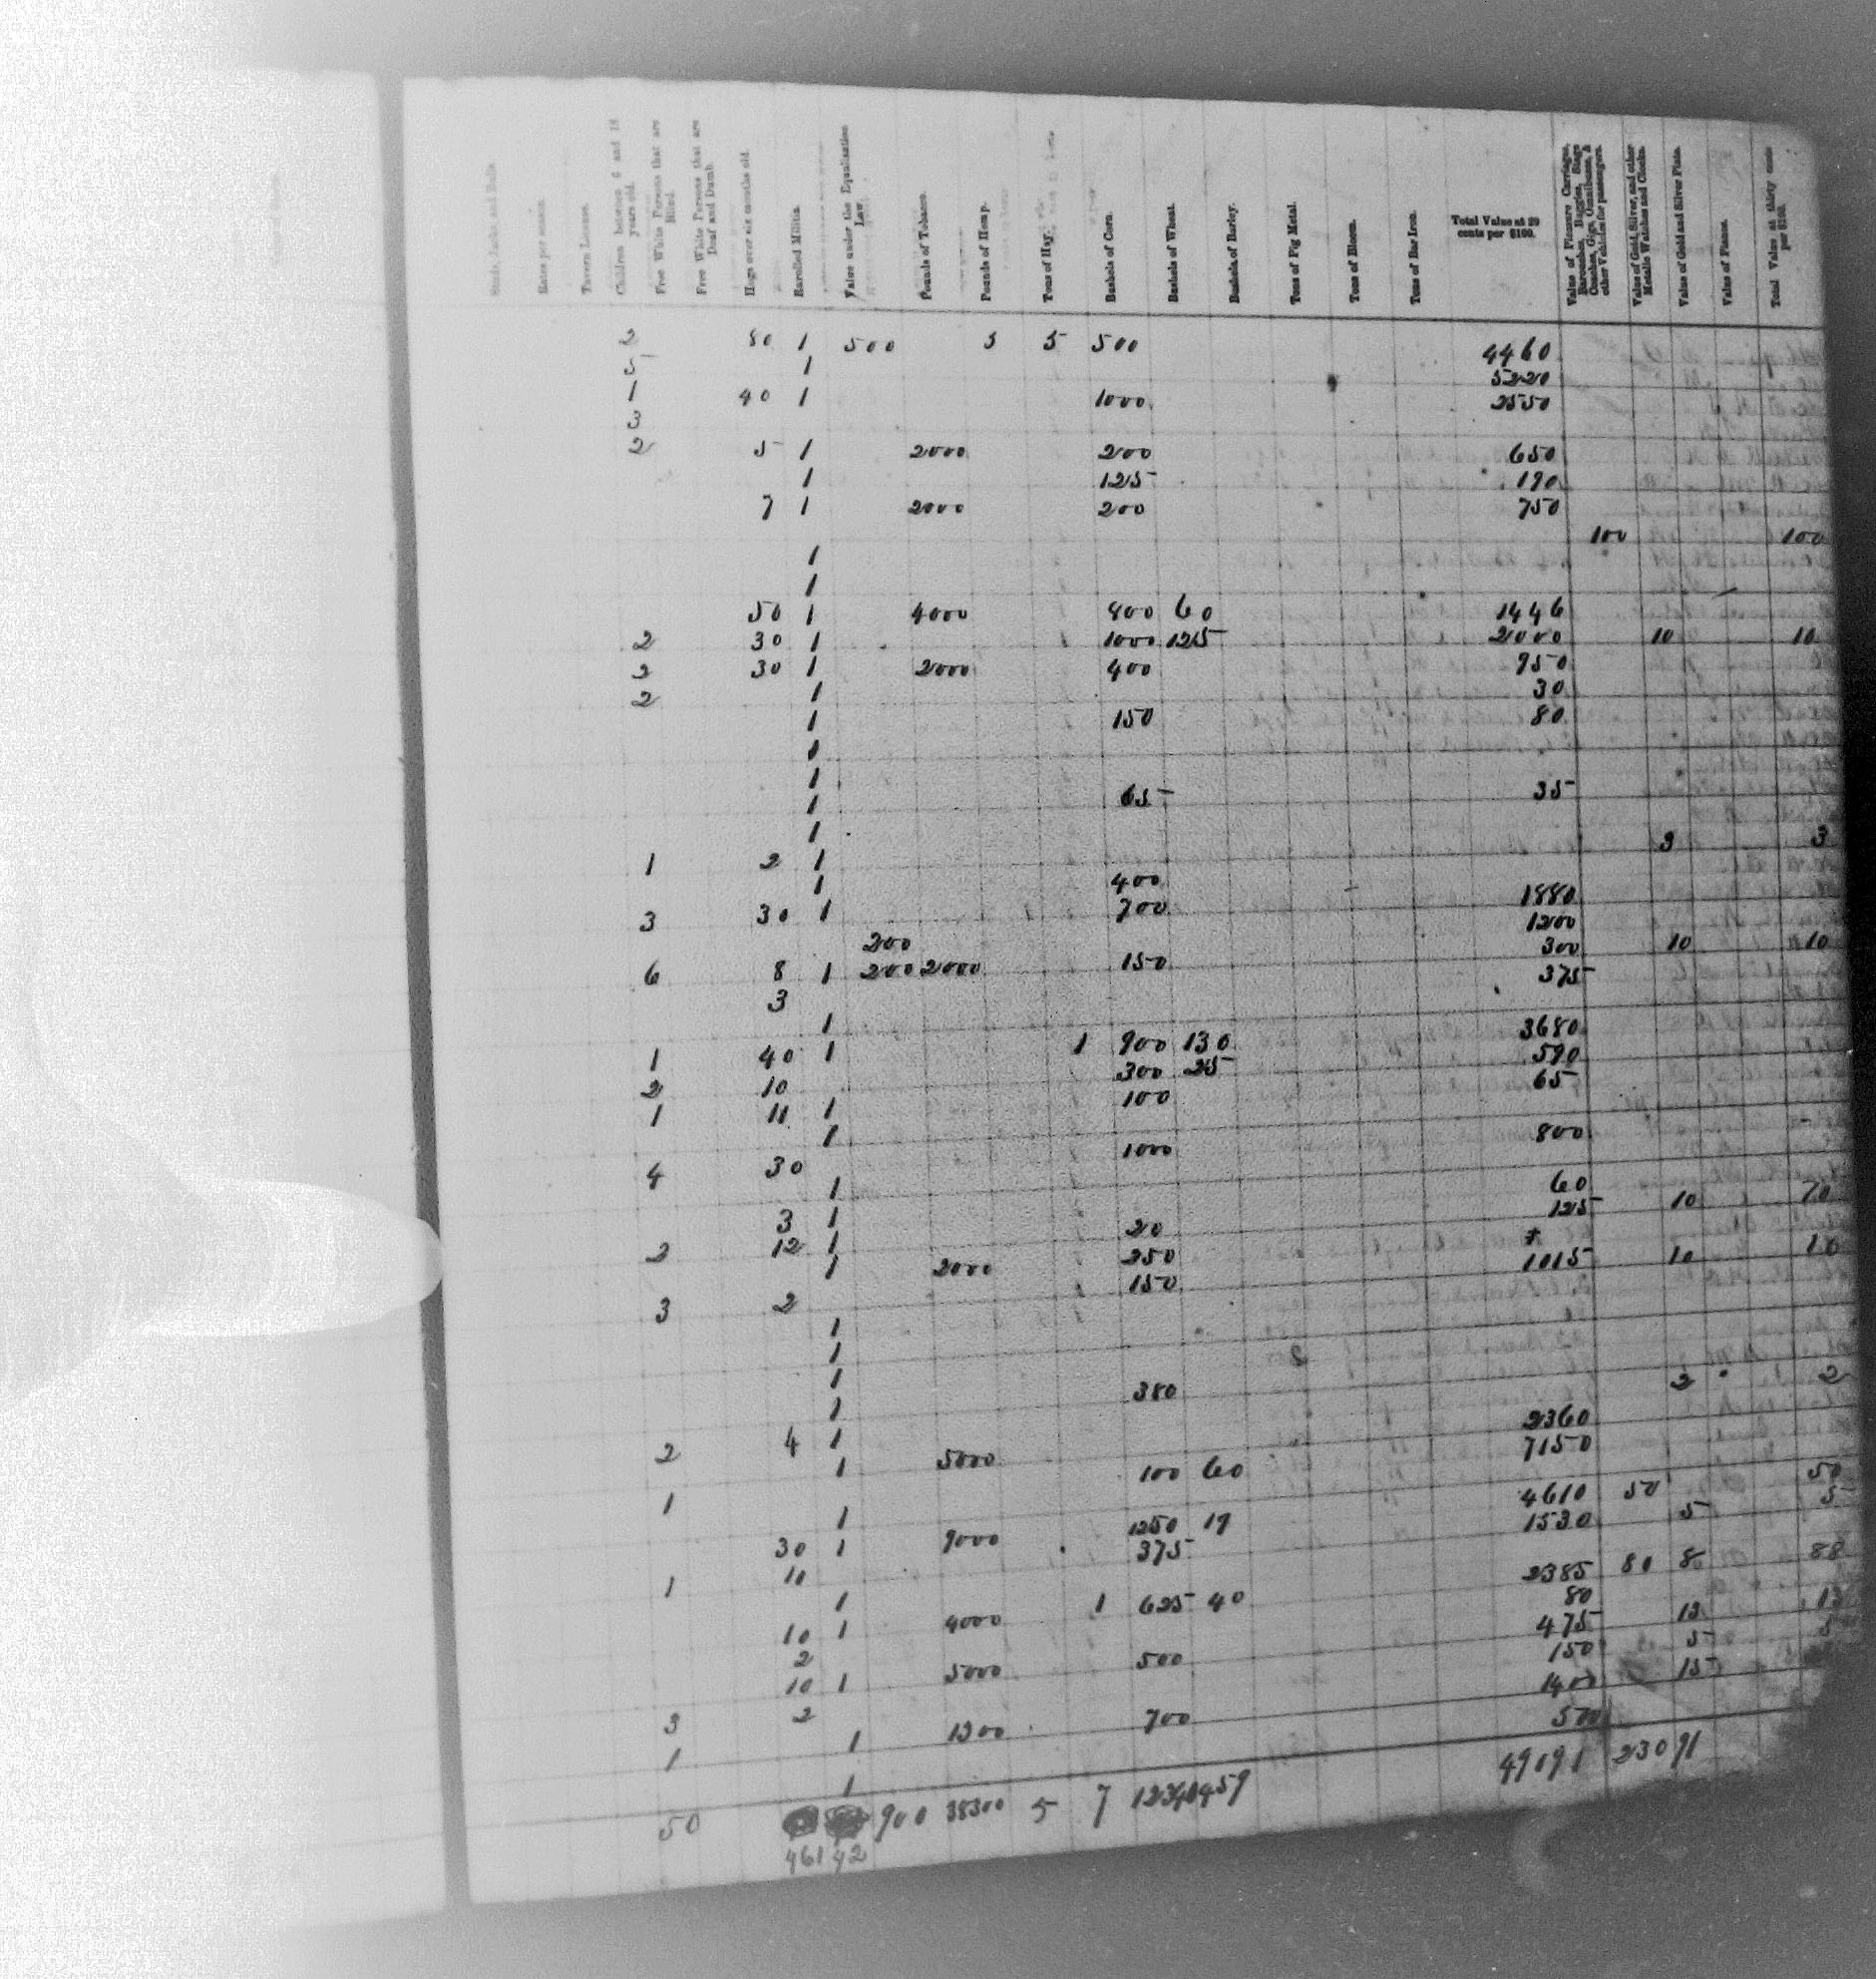 Studs, Jacks and Bulls
Rates per season.
Tavern License.
Children between 6 and 18 years old.
Free White Persons that are Blind.
Free White Persons that are Deaf and Dumb.
Hogs over six months old.
Enrolled Militia.
Value under the Equalization Law.
Pounds of Tobacco.
Pounds of Hemp.
Tons of Hay.
Bushels of Corn.
Bushels of Wheat.
Bushels of Barley.
Tons of Pig Metal.
Tons of Bloom.
Tons of Bar Iron.
Total Value at 20 cents per $100.
Value of Pleasure Carriages, Barouches, Buggies, Stage Coaches, Gigs, Omnibuses, & other Vehicles for passengers.
Value of Gold, Silver, and other Metalic Watches and Clocks.
Value of Gold and Silver Plate.
Value of Pianos.
Total Value at thirty cents per $100.
2 80 1 500 5 5 500 4460
5 1 5220
1 40 1 1000 2550
3
2 5 1 2000 200 650
1 125 190
7 1 2000 200 750
100 100
1
1
50 1 4000 400 60 1446
2 30 1 1000 125 2000 10 10
2 30 1 2000 400 950
2 1 30
1 150 80
1
1
1 65 35
1 3 3
1 2 1
1 400 1880
3 30 1 700 1200
200 300 10 10
6 8 1 200 2000 150 375
3
1 3680
1 40 1 1 900 130 590
2 10 300 25 65
1 11 1 100
1 800
4 30 1000
1 60
3 1 20 125 10 70
2 12 1 250
1 2000 150 1015 10 10
3 2
1
1
1 380 2 2
1 2360
2 4 1 7150
1 5000 100 60
1 4610 50 50
1 1250 19 1530 5 5
30 1 9000 375
1 10 2385 80 8 88
1 1 625 40 80
10 1 4000 475 13 13
2 500 150 5 5
10 1 5000 1400 15
3 2 700 500
1 1 1300
1 49191 230 91
50 900 38300 5 7 12340 459
461 42